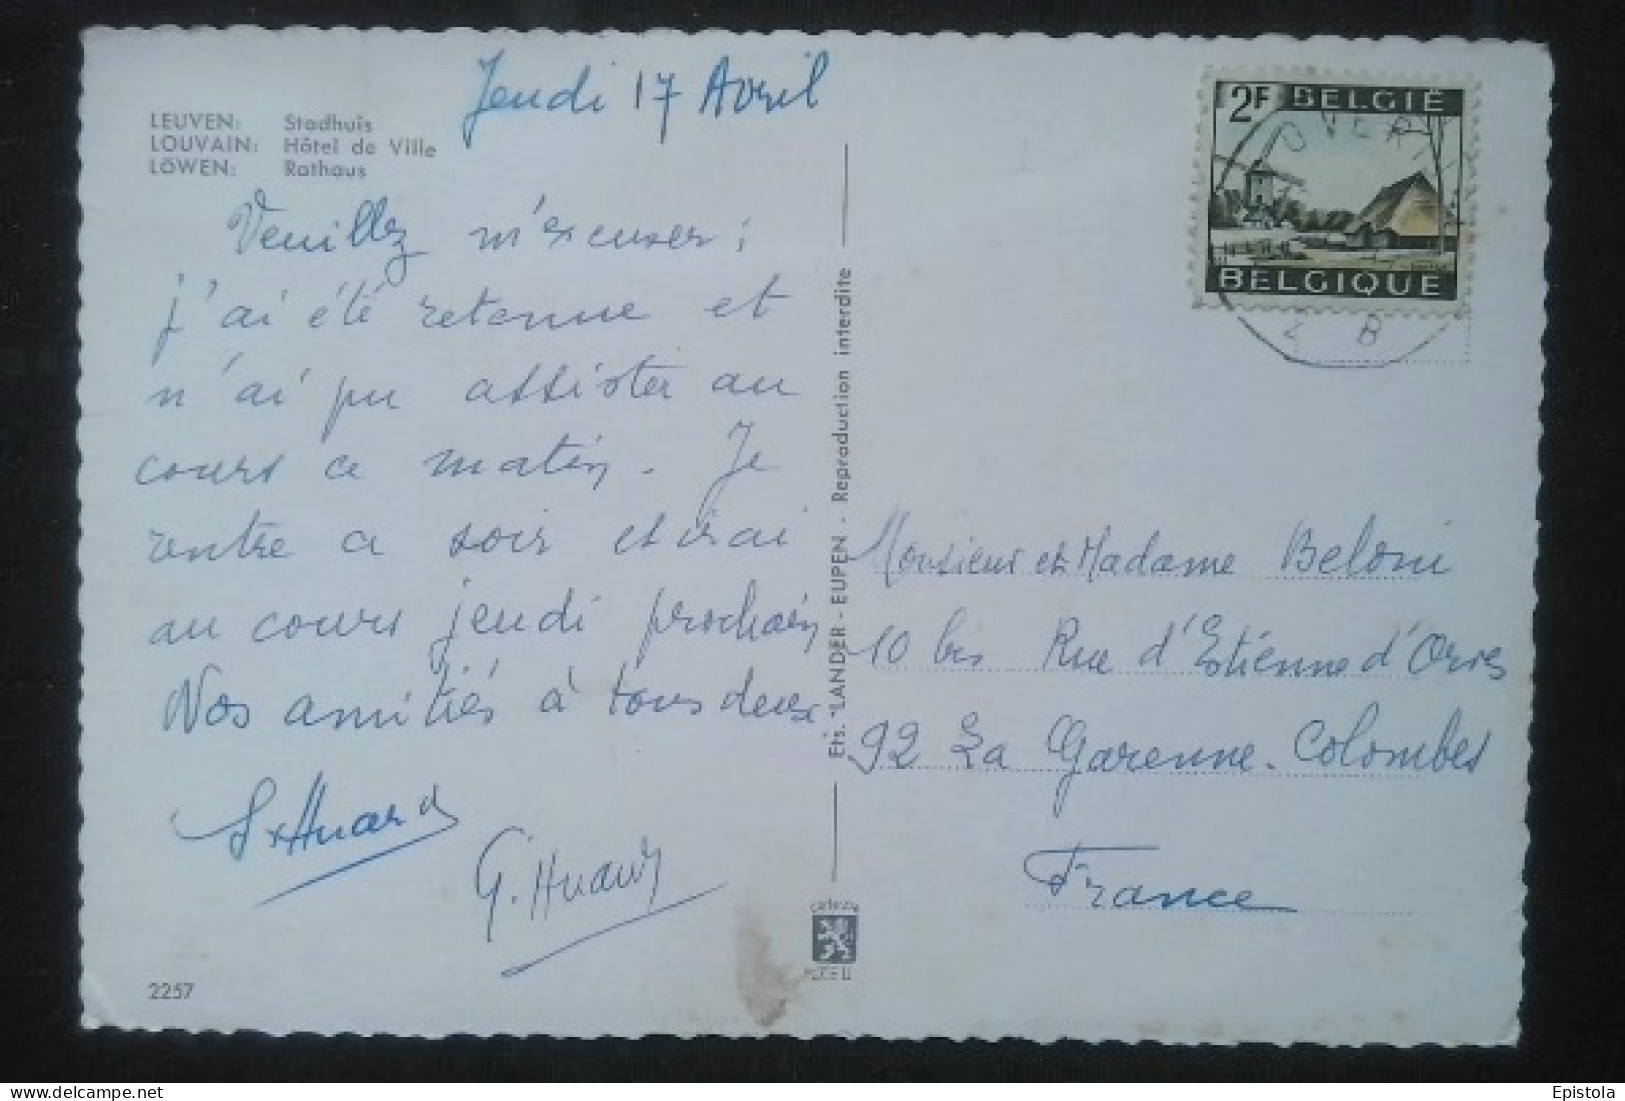 Jeudi 17 Avril
LEUVEN: Stadhuis
LOUVAIN: Hôtel de Ville
LÖWEN: Rathaus
Veuillez m'excuser ;
j'ai été retenue et
n'ai pu assister au
cours ce matin. Je
rentre ce soir et irai
au cours jeudi prochain
Nos amitiés à tous deux
Huard
G. Huard
2257
Ets. LANDER - EUPEN - Reproduction interdite
2F BELGIË
BELGIQUE
Monsieur et Madame Beloni
10 bis Rue d'Estienne d'Orves
92 La Garenne-Colombes
France
delcampe.net
Epistola